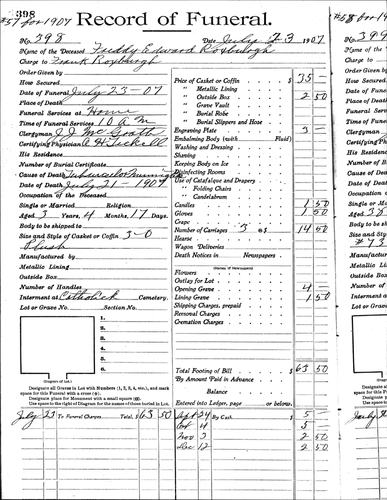 398
#57 for 1907
Record of Funeral.
No. 398 Date July 23 1907
Name of the Deceased Freddy Edward Roxburgh
Charge to Frank Roxburgh
Order Given by
How Secured
Date of Funeral July 23-07
Place of Death
Funeral Services at Home
Time of Funeral Services 10 A M
Clergyman J J McGrath
Certifying Physician
His Residence
Number of Burial Certificate
Cause of Death Tubercular
Date of Death July 21-1907
Occupation of the Deceased
Single or Married Religion
Aged 3 Years, 4 Months, 17 Days
Body to be shipped to
Size and Style of Casket or Coffin 3-0
Plush
Manufactured by
Metallic Lining
Outside Box
Number of Handles
Interment at Catholick Cemetery.
Lot or Grave No. Section No.
1.
2.
3.
4.
5.
6.
(Diagram of Lot.)
Designate all Graves in Lot with Numbers (1, 2, 3, 4, etc.), and mark
space for this Funeral with a cross (+).
Designate place for Monument with a small square
Use space to the right of Diagram for the names of those buried in Lot.
July 23 To Funeral Charges Total, $ 63 50
Price of Casket or Coffin $ 35 -
" Metallic Lining
" Outside Box 2 50
" Grave Vault
" Burial Robe
" Burial Slippers and Hose
Engraving Plate 3 -
Embalming Body (with Fluid)
Washing and Dressing
Shaving
Keeping Body on Ice
Disinfecting Rooms
Use of Catafalque and Drapery
" Folding Chairs
" Candelabrum
Candles 1 50
Gloves 1 50
Crape
Number of Carriages 3 14 50
Hearse
Wagon Deliveries
Death Notices in Newspapers
(Names of Newspapers)
Flowers
Outlay for Lot
Opening Grave 4 -
Lining Grave 1 50
Shipping Charges, prepaid
Removal Charges
Cremation Charges
Total Footing of Bill $ 63 50
By Amount Paid in Advance
Balance
Entered into Ledger, page or below.
Sept 24 By Cash $ 5 -
Oct 4 5 -
Nov 3 2 50
Dec 12 2 50
#58 for 190
No. 399
Name of
Charge to
Order Given
How Secured
Date of Fune
Place of Dea
Funeral Serv
Time of Fune
Clergyman
Certifying Ph
His Residen
Number of B
Cause of Dea
Date of Deat
Occupation o
Single or Ma
Aged 38
Body to be s
Size and Sty
#73
Manufactured
Metallic Lini
Outside Box
Number of H
Interment at
Lot or Grave
(Diagram
Designate
space for this
Designate
Use space to